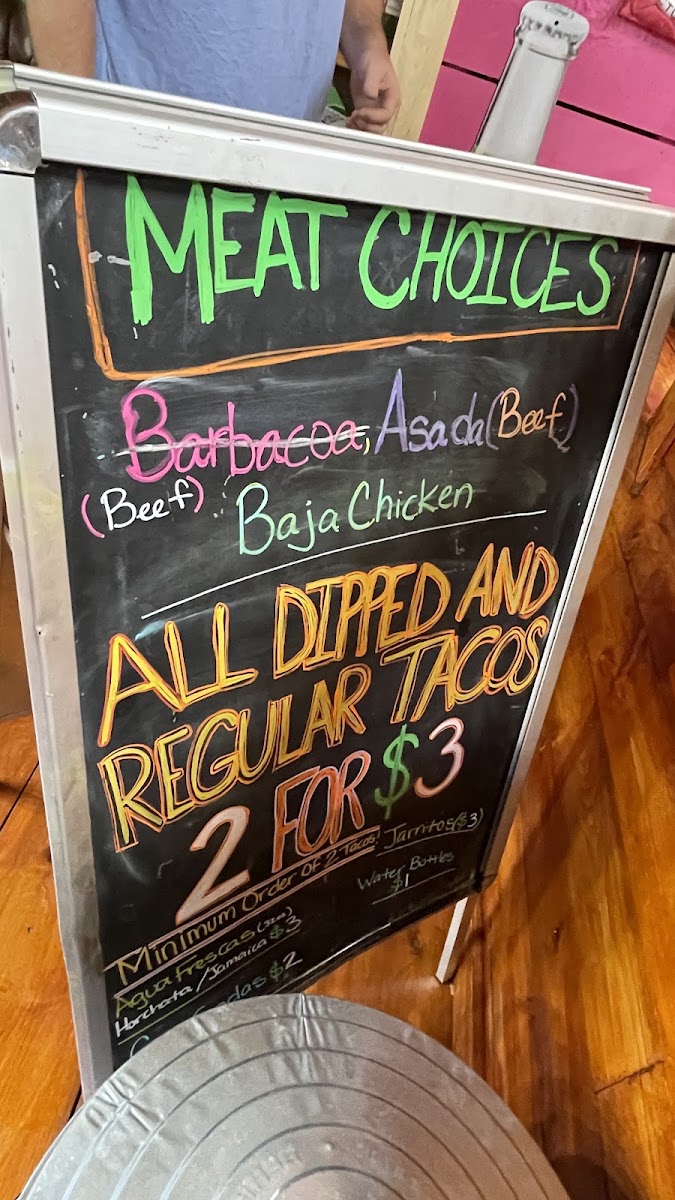 MEAT CHOICES
Barbacoa, Asada (Beef)
(Beef) Baja Chicken
ALL DIPPED AND
REGULAR TACOS
2 FOR $3
Minimum Order Of 2 Tacos!
Jarritos ($3)
Water Bottles
$1
Agua frescas
Horchata/Jamaica $3
$2